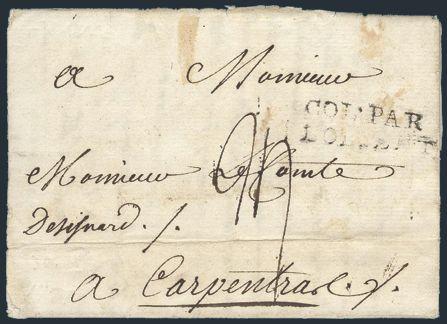 a Monsieur
COL. PAR
LORIENT
Monsieur Le Comte
Desisnard ./.
a Carpentras ./.